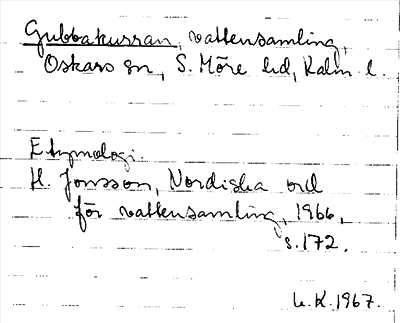 Gubbakurran, vattensamling,
Oskars sn, S. Möre hd, Kalm l.
Etymologi.
H. Jonsson, Nordiska ord
för vattensamling, 1966,
s. 172.
U.K. 1967.